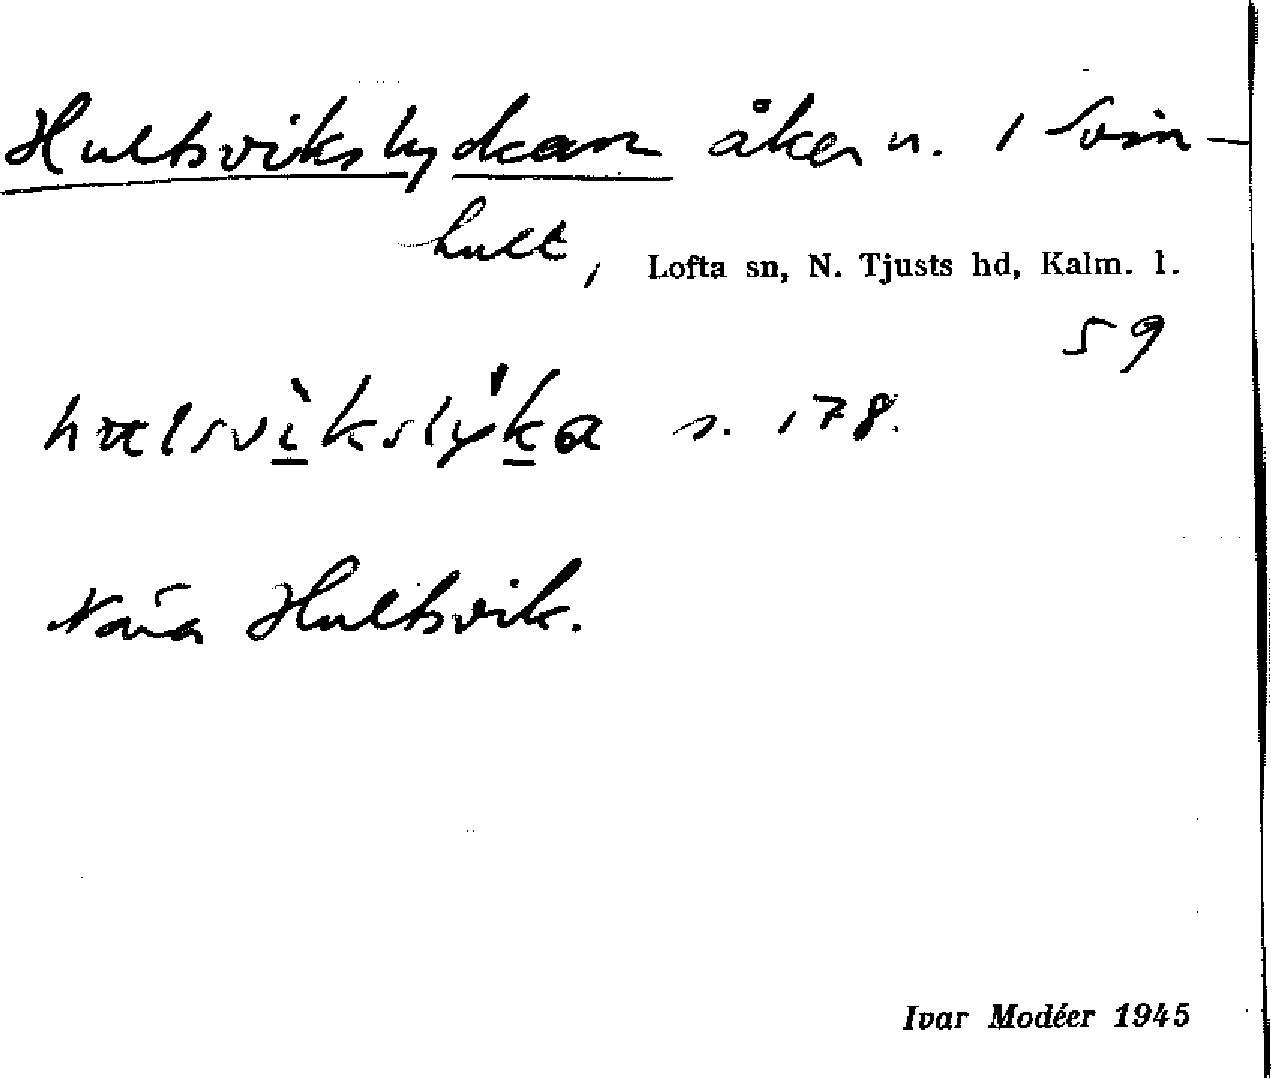 Hultsvikslyckan åker u. 1 Svin-
hult, Lofta sn, N. Tjusts hd, Kalm. l.
59
s. 178.
Nära Hultsvik.
Ivar Modéer 1945